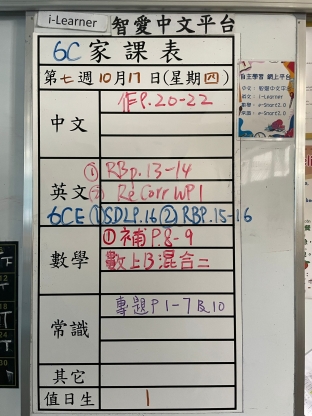 i-Learner 智愛中文平台
6C 家課表
第七週10月17日(星期四)
中文 作P.20-22
英文 ① RBp.13-14
② Re Corr WP1
6CE ①SDLP.16 ② RBP.15-16
數學 ①補P.8-9
數上B混合二
常識 專題P1-7及10
其它
值日生 1
自主學習 網上平台
中文: 智愛中文平台
英文: i-Learner
數學: e-Smart2.0
常識: e-Smart2.0